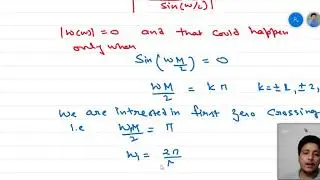 sin(w/2)
|W(w)| = 0 and that could happen
only when
Sin(wM/2) = 0
wM/2 = kπ k = ±1, ±2,
We are intrested in first zero crossing
i.e wM/2 = π
w = 2π/